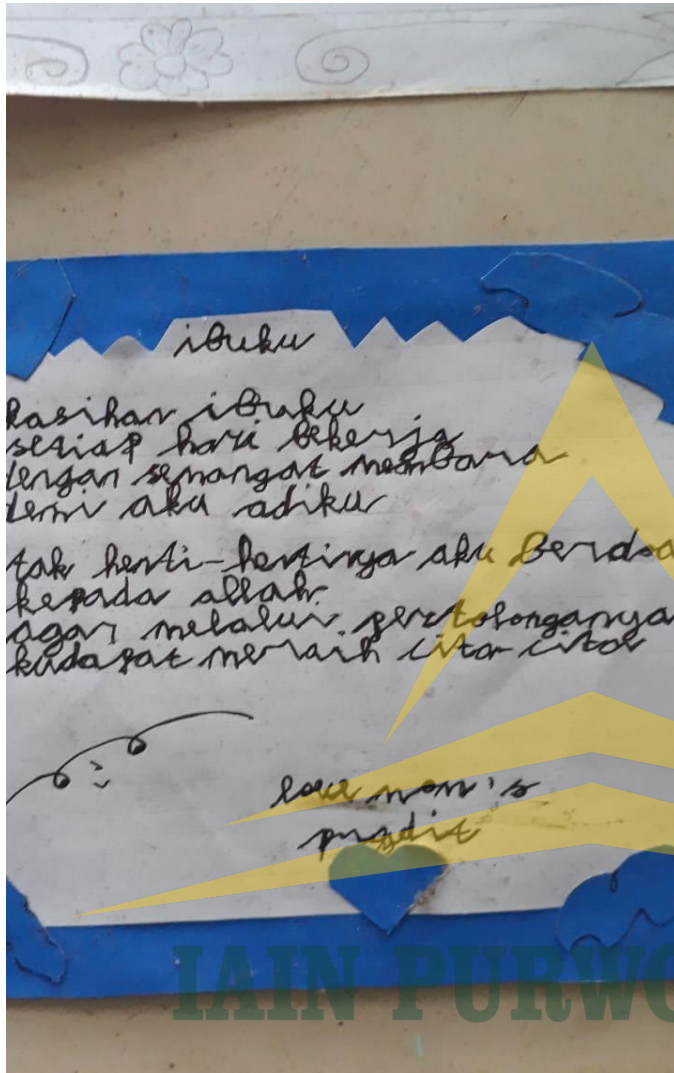 ibuku
kasihan ibuku
setiap hari bekerja
dengan semangat membara
demi aku adiku
tak henti-hentinya aku berdoa
kepada allah
agar melalui pertolonganya
kudapat meraih cita-cita
love mom's
IAIN PURWO